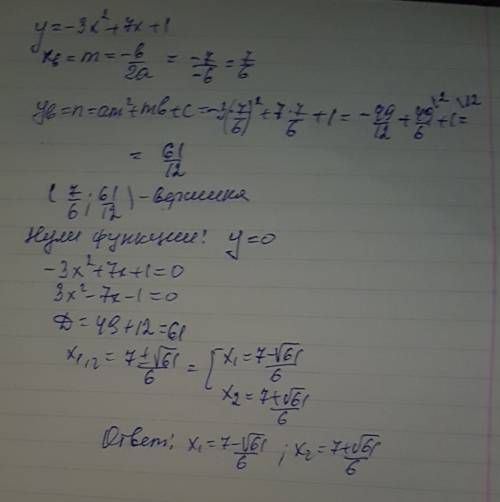 y=-3x²+7x+1
xв=m=-b/2a = -7/-6 = 7/6
yв=n=am²+mb+c=-3(7/6)²+7·7/6+1=-49/12+49/6\2+1\12=
= 61/12
(7/6;61/12)-вершина
Нули функции! y=0
-3x²+7x+1=0
3x²-7x-1=0
D=49+12=61
x1,2=7±√61/6=[x1=7-√61/6
x2=7+√61/6
Ответ: x1=7-√61/6 ; x2=7+√61/6